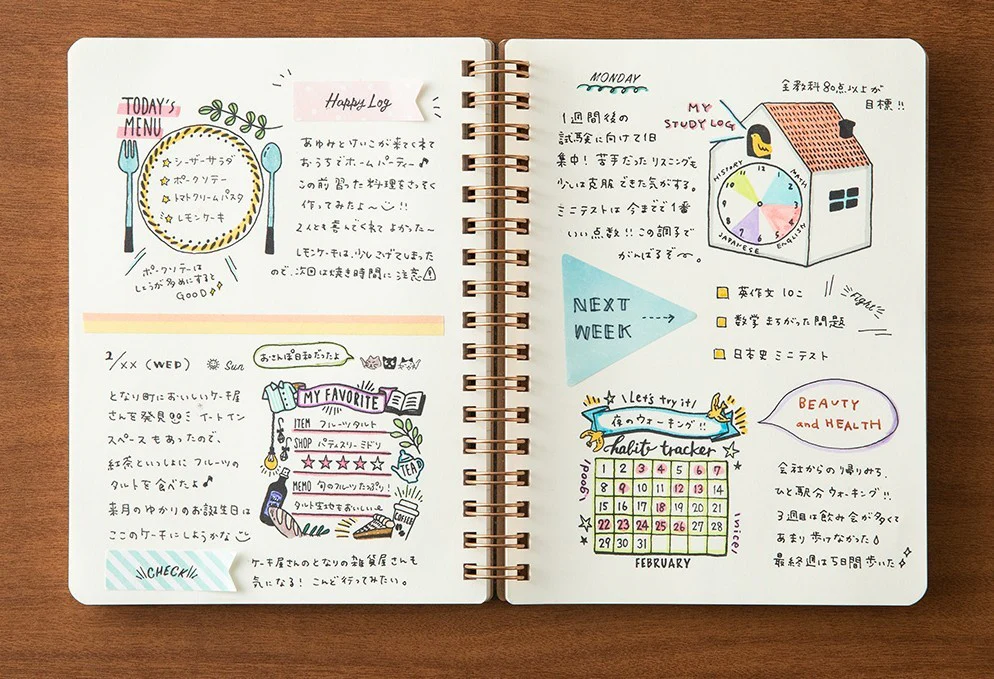 TODAY'S
MENU
シーザーサラダ
ポークソテー
トマトクリームパスタ
レモンケーキ
ポークソテーは
しょうが多めにすると
GOOD
Happy Log
あゆみとけいこが来てくれて
おうちでホームパーティー♪
この前習った料理をさっそく
作ってみたよ〜!!
2人とも喜んでくれてよかった〜
レモンケーキは、少しこげてしまった
ので、次回は焼き時間に注意!
2/XX (WED)
Sun
おさんぽ日和だったよ
となり町においしいケーキ屋
さんを発見 イートイン
スペースもあったので、
紅茶といっしょにフルーツの
タルトを食べたよ♪
来月のゆかりのお誕生日は
ここのケーキにしようかな
MY FAVORITE
ITEM フルーツタルト
SHOP パティスリーミドリ
★★★★☆
MEMO 旬のフルーツたっぷり!
タルト生地もおいしい
TEA
COFFEE
CHECK
ケーキ屋さんのとなりの雑貨屋さんも
気になる! こんど行ってみたい。
MONDAY
1週間後の
試験に向けて1日
集中! 苦手だったリスニングも
少しは克服できた気がする。
ミニテストは今までで1番
いい点数!! この調子で
がんばるぞ〜。
MY
STUDY LOG
全教科80点以上が
目標!!
HISTORY
MATH
JAPANESE
ENGLISH
12
1
2
3
4
5
6
7
8
9
10
11
NEXT
WEEK
英作文 10こ
数学 まちがった問題
日本史 ミニテスト
Fight!
Let's try it!
夜のウォーキング!!
habit tracker
good!
nice!
1 2 3 4 5 6 7
8 9 10 11 12 13 14
15 16 17 18 19 20 21
22 23 24 25 26 27 28
29 30 31
FEBRUARY
BEAUTY
and HEALTH
会社からの帰りみち、
ひと駅分ウォーキング!!
3週目は飲み会が多くて
あまり歩けなかった
最終週は5日間歩いた